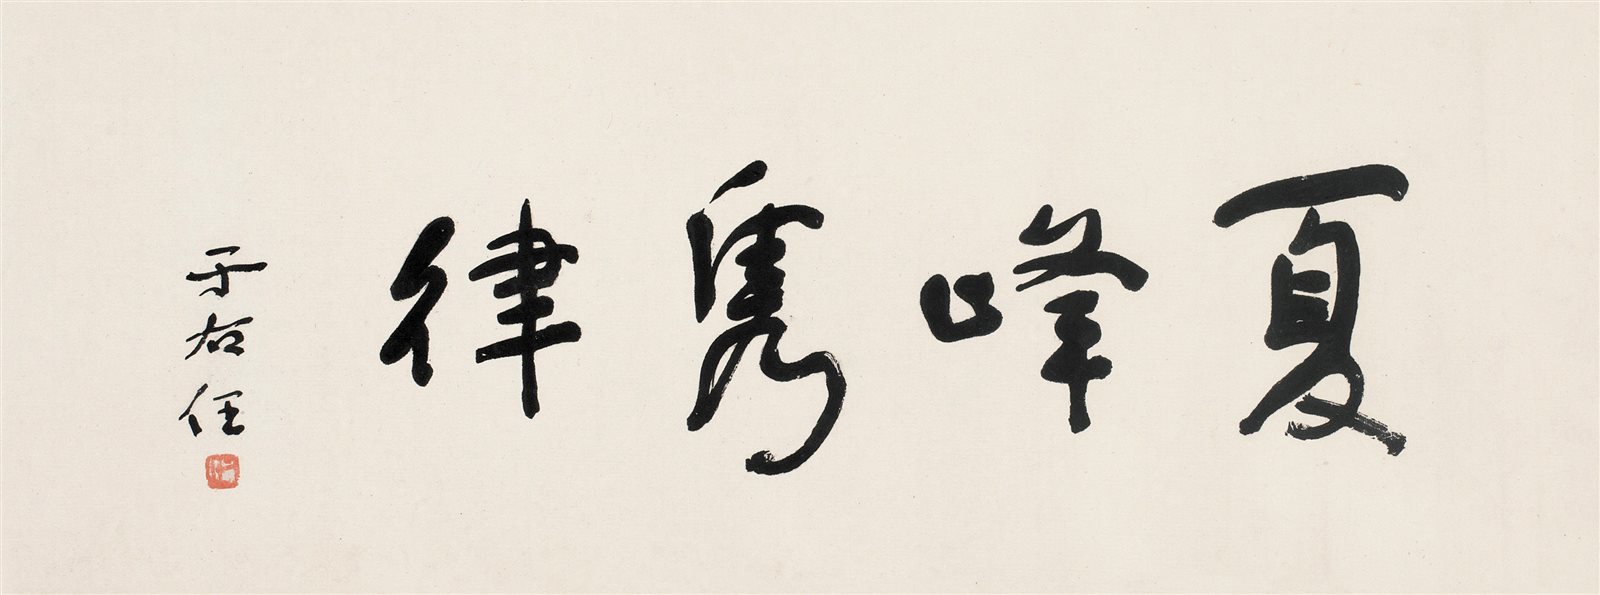 夏峰雋律
于右任